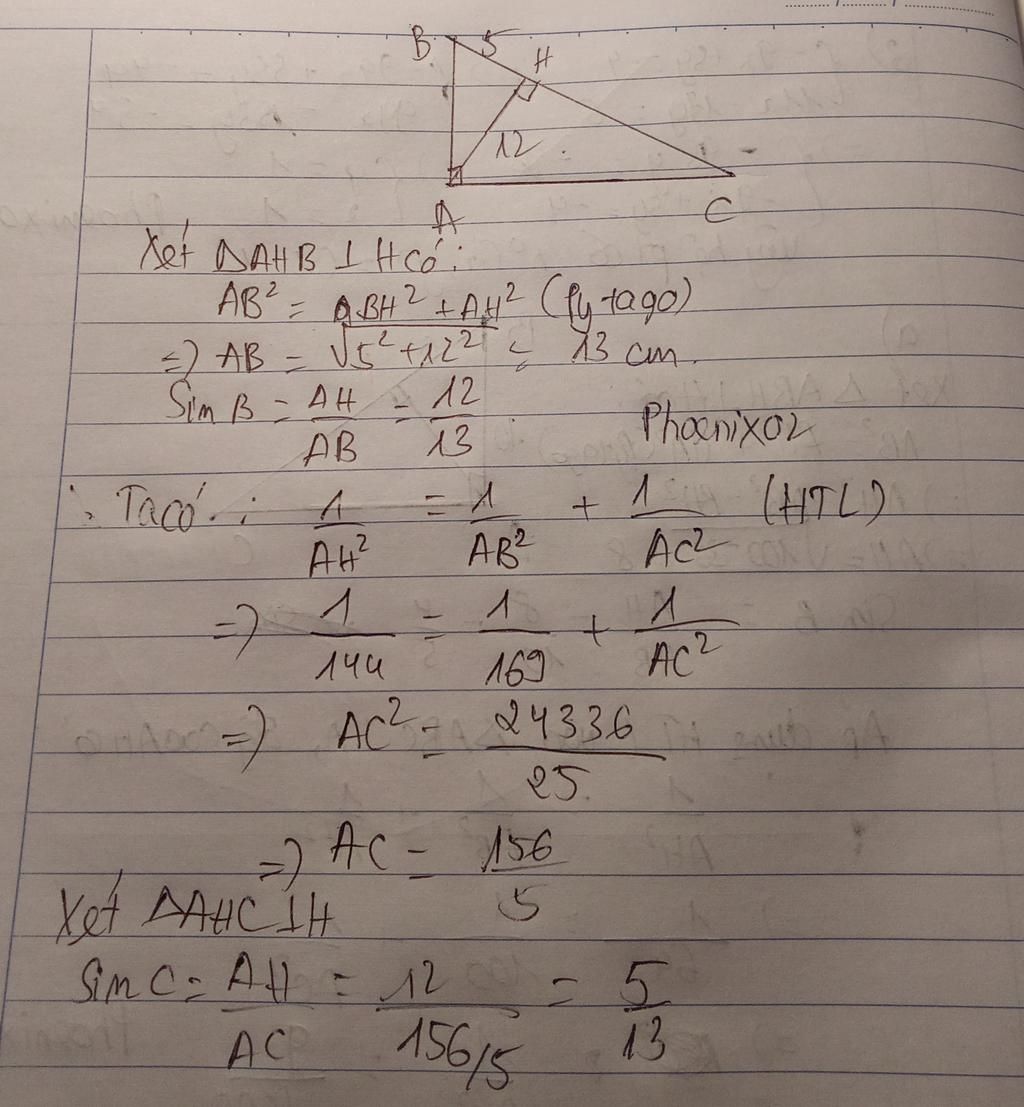 B 5 H
12
A C
Xét ΔAHB ⊥ H có:
AB² = BH² + AH² (Py tago)
=> AB = √5²+12² = 13 cm.
Sin B = AH/AB = 12/13
Phoenix02
Ta có: 1/AH² = 1/AB² + 1/AC² (HTL)
=> 1/144 = 1/169 + 1/AC²
=> AC² = 24336/25
=> AC = 156/5
Xét ΔAHC ⊥ H
Sin C = AH/AC = 12/156/5 = 5/13